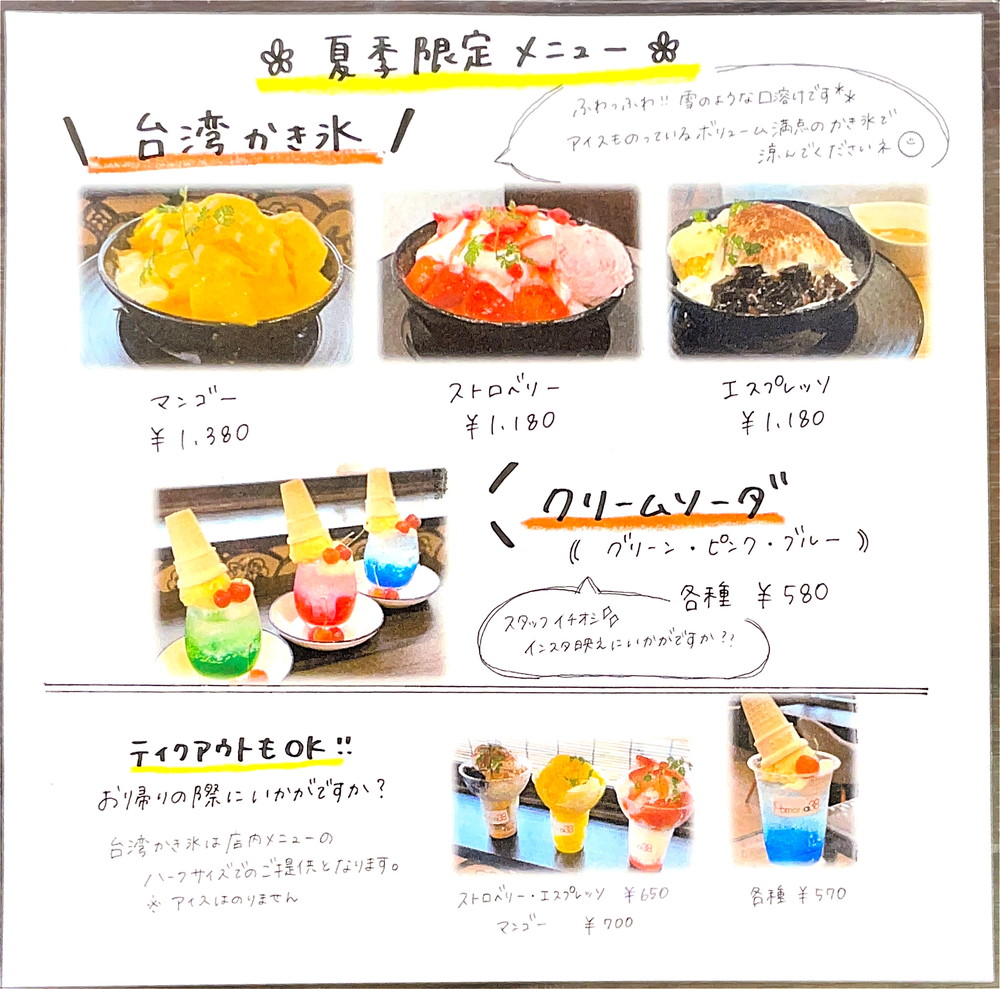 夏季限定メニュー
台湾かき氷
ふわっふわ!! 雪のような口溶けです**
アイスものっているボリューム満点のかき氷で
涼んでくださいネ
マンゴー
¥1,380
ストロベリー
¥1,180
エスプレッソ
¥1,180
クリームソーダ
(( グリーン・ピンク・ブルー ))
各種 ¥580
スタッフイチオシ
インスタ映えにいかがですか??
テイクアウトもOK!!
お帰りの際にいかがですか?
台湾かき氷は店内メニューの
ハーフサイズでのご提供となります。
※ アイスはのりません
ストロベリー・エスプレッソ ¥650
マンゴー ¥700
各種 ¥570